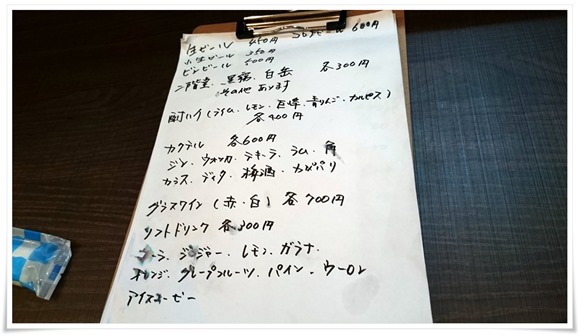 生ビール 450円 SOLビール 600円
小生ビール 350円
ビンビール 500円
二階堂、黒霧、白岳 各300円
その他あります
酎ハイ(ライム、レモン、巨峰、青りんご、カルピス)
各400円
カクテル 各600円
ジン、ウォッカ、テキーラ、ラム、角
カシス、ディタ、梅酒、カンパリ
グラスワイン(赤・白) 各700円
ソフトドリンク 各300円
コーラ、ジンジャー、レモン、ガラナ
オレンジ、グレープフルーツ、パイン、ウーロン
アイスコーヒー